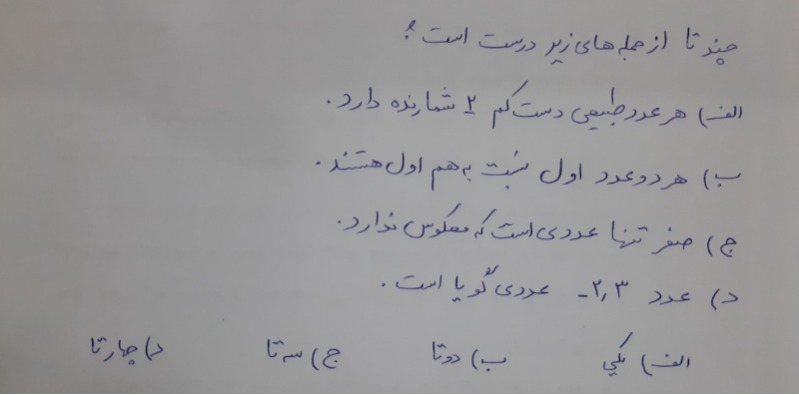 چند تا از جمله های زیر درست است؟
الف) هر عدد طبیعی دست کم ۲ شمارنده دارد.
ب) هر دو عدد اول نسبت به هم اول هستند.
ج) صفر تنها عددی است که معکوس ندارد.
د) عدد ۲٫۳- عددی گویا است.
الف) یکی ب) دوتا ج) سه تا د) چهارتا